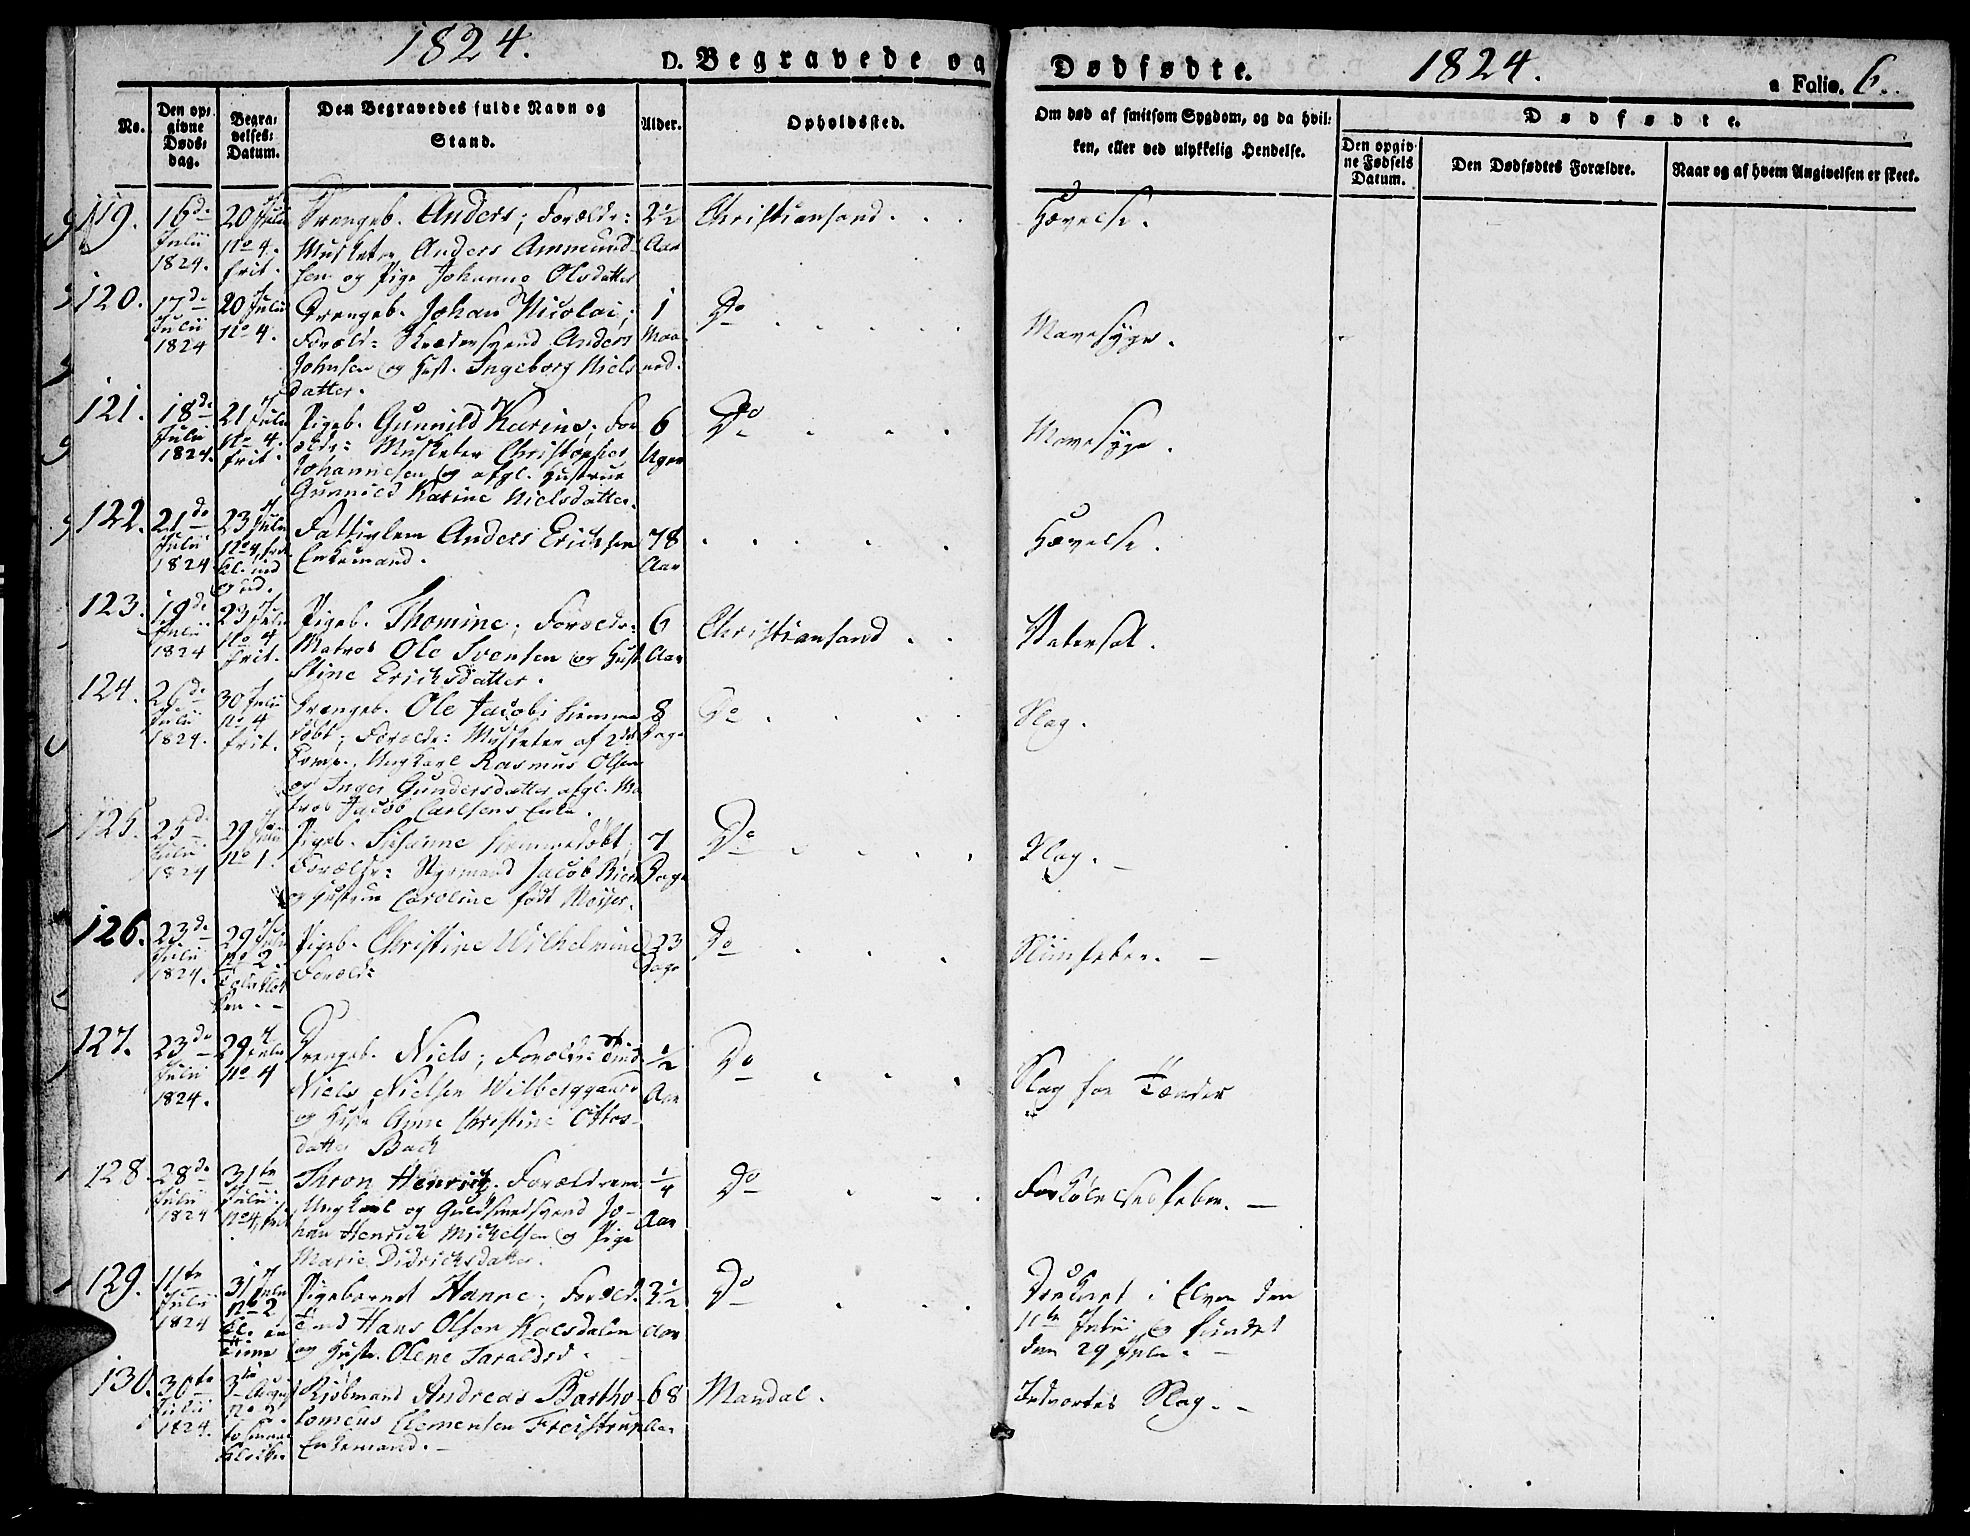 1824.
D. Begravede og
Dødfødte.
1824.
a Folio. 6.
No.
Den op-
givne
Døds-
dag.
Begra-
velses-
Datum.
Den Begravedes fulde Navn og
Stand.
Alder.
Opholdssted.
Om død af smitsom Sygdom, og da hvil-
ken, eller ved ulykkelig Hendelse.
Dødfødte.
Den opgiv-
ne Fødsels
Datum.
Den Dødfødtes Forældre.
Naar og af hvem Angivelsen er skeet.
119. 16de Julii 1824. 20 Julii No 4. frit.
Drengeb. Anders; Forældr:
Musketeer Anders Ammund-
sen og Pige Johanne Olsdatter
2½ Aar
Christiansand.
Hævelse.
120. 17de Julii 1824 20 Julii No 4.
Drengeb. Johan Nicolai;
Foræld: Skrædersvend Anders
Johnsen og Hust. Ingeborg Niels
datter.
1 Maaned.
Do
Mavesyge.
121. 18de Julii 1824. 21 Julii No 4. frit.
Pigeb. Gunnild Karine; For
ældr: Musketeer Christopher
Johannesen og afgl. Hustrue
Gunnild Karine Nielsdatter.
6 Uger
Do
Mavesyge.
122. 21de Julii 1824 23 Julii No 4,
kl. ind
og ud.
Fattiglem Anders Erichsen
Enkemand.
78 Aar
Hævelse.
123. 19de Julii 1824 23 Julii No 4 frit.
Pigeb. Thomine; Forældr:
Matros Ole Svensen og Hust
Stine Erichsdatter.
6 Aar
Christiansand
Vatersot.
124. 26de Julii 1824. 30 Julii No 4 frit.
Drengeb. Ole Jacob; hiemme
døbt; Forældr: Musketeer af 2det
Comp. Ungkarl Rasmus Olsen
og Inger Gundersdatter afgl. Ma
tros Jacob Carlsens Enke.
8 Dage
Do
Slag.
125. 25de Julii 1824 29 Julii No 1.
Pigeb. Susanne hiemmedøbt;
Forældr: Styrmand Jacob
og Hustrue Caroline født
7 Dage
Do
Slag.
126. 23de Julii 1824. 29 Julii No 2.
Pigeb. Christine Wilhelmine
Foræld:
23 Dage
Do
Sliimfeber.
127. 23de Julii 1824. 29 Julii No 4
Drengeb. Niels; Forældr:
Niels Nielsen Wilberggaard
og Hust Anne Christine Ottos-
datter Bach
½ Aar
Do
Slag for Tænder
128 28de Julii 1824 31te Julii No 4, frit
Thron Henrich. Forældrene
Ungkarl og Guldsmedsvend Jo-
han Henrich Michelsen og Pige
Marie Didrichsdatter.
¼ Aar
Do
Forkølelsesfeber.
129. 11te Julii 1824 31 Julii No 2 kl. en Time
Pigebarnet Hanne; Foræld.
Hans Olsen Kolsdalen
og Hustr. Olene Taraldsd.
3½ Aar
Do
Druknet i Elven den
11te Julii og fundet
den 29 Julii.
130. 30te Julii 1824. 3die August No 2.
Kiøbmand Andreas Bartho-
lomeus Clemensen Freistrup
Enkemand.
68 Aar
Mandal.
Indvortes Slag.